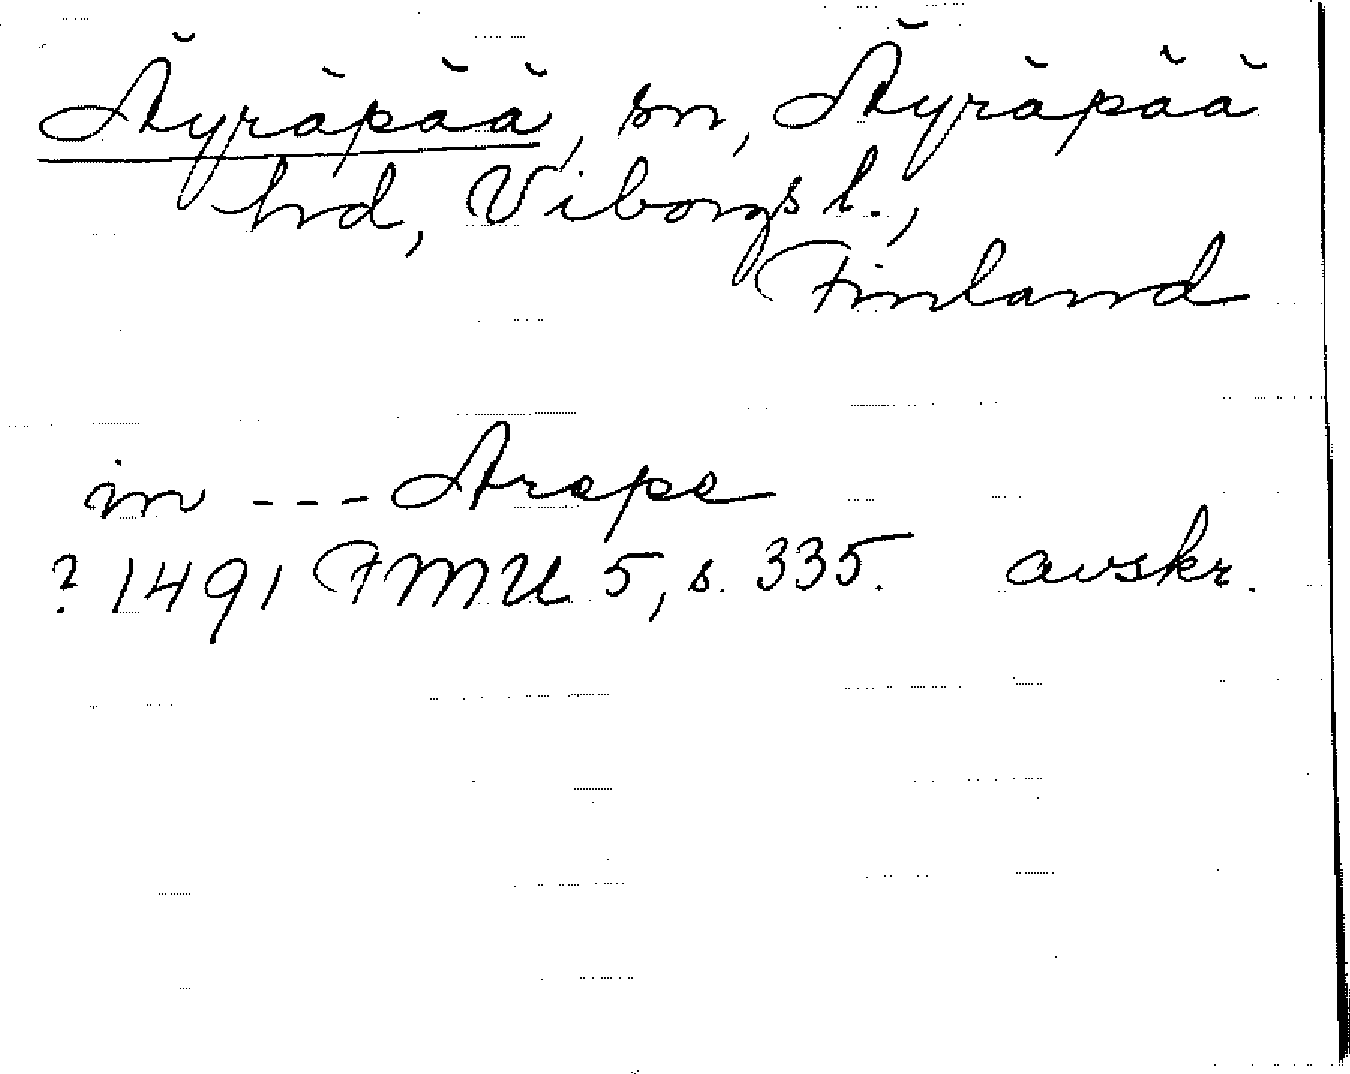 Äyräpää, sn, Äyräpää
hd, Viborgs l.,
Finland
in --- Arepe
? 1491 FMU 5, s. 335. avskr.